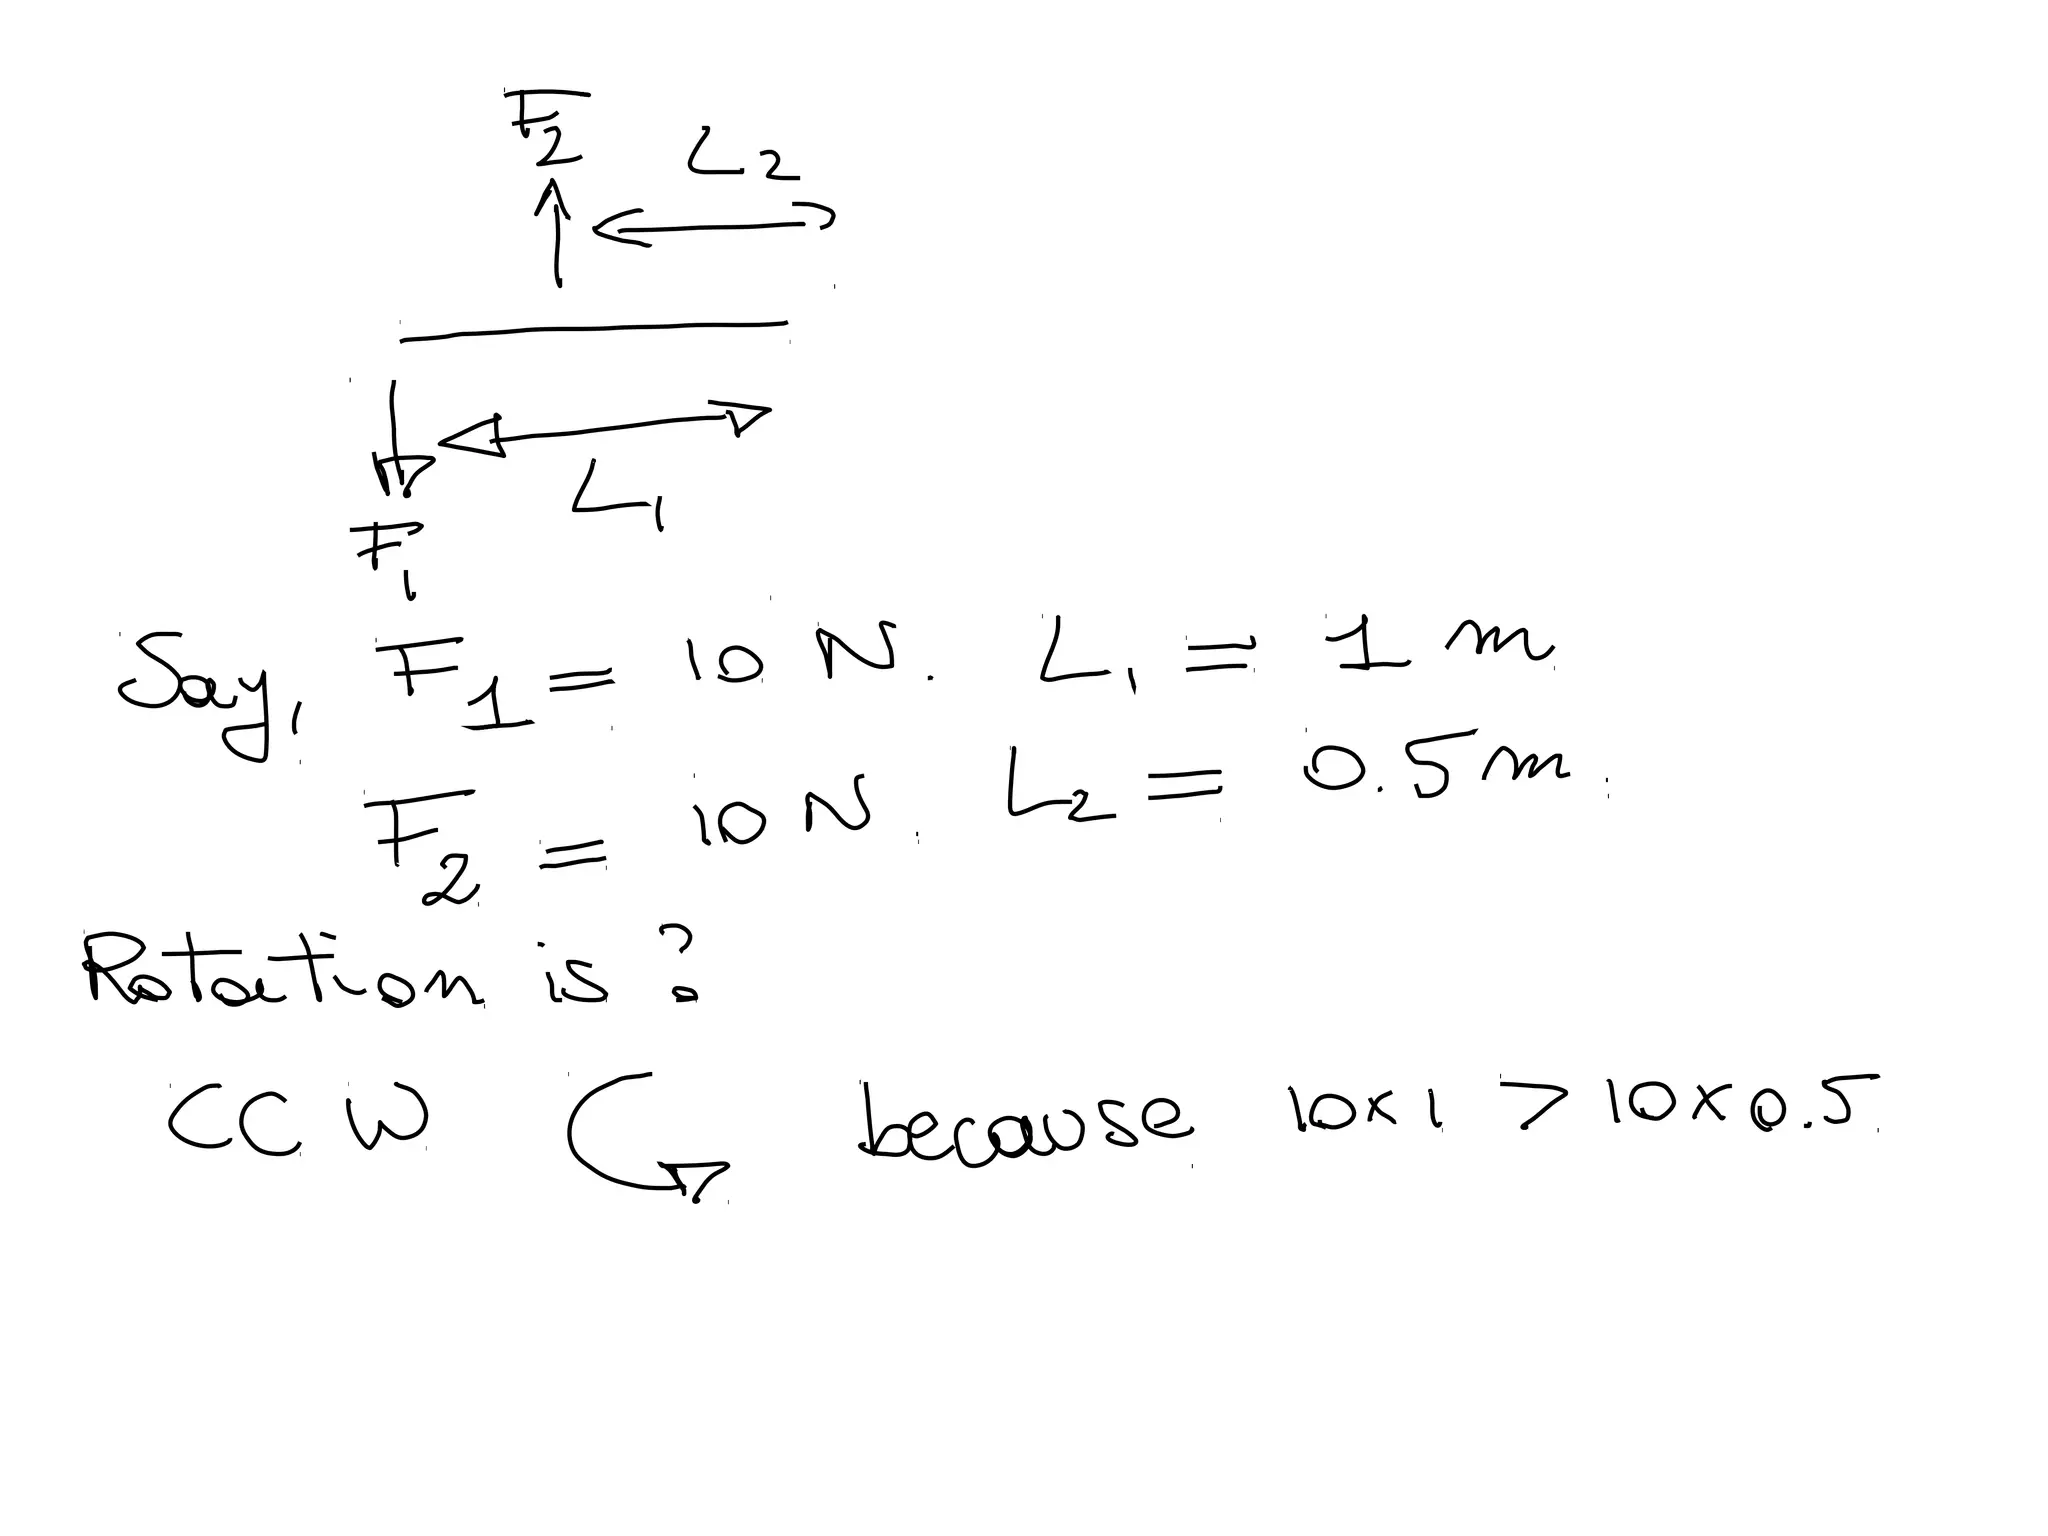 F2
L2
L1
F1
Say, F1 = 10 N. L1 = 1 m
F2 = 10 N. L2 = 0.5 m.
Rotation is ?
CCW because 10x1 > 10x0.5